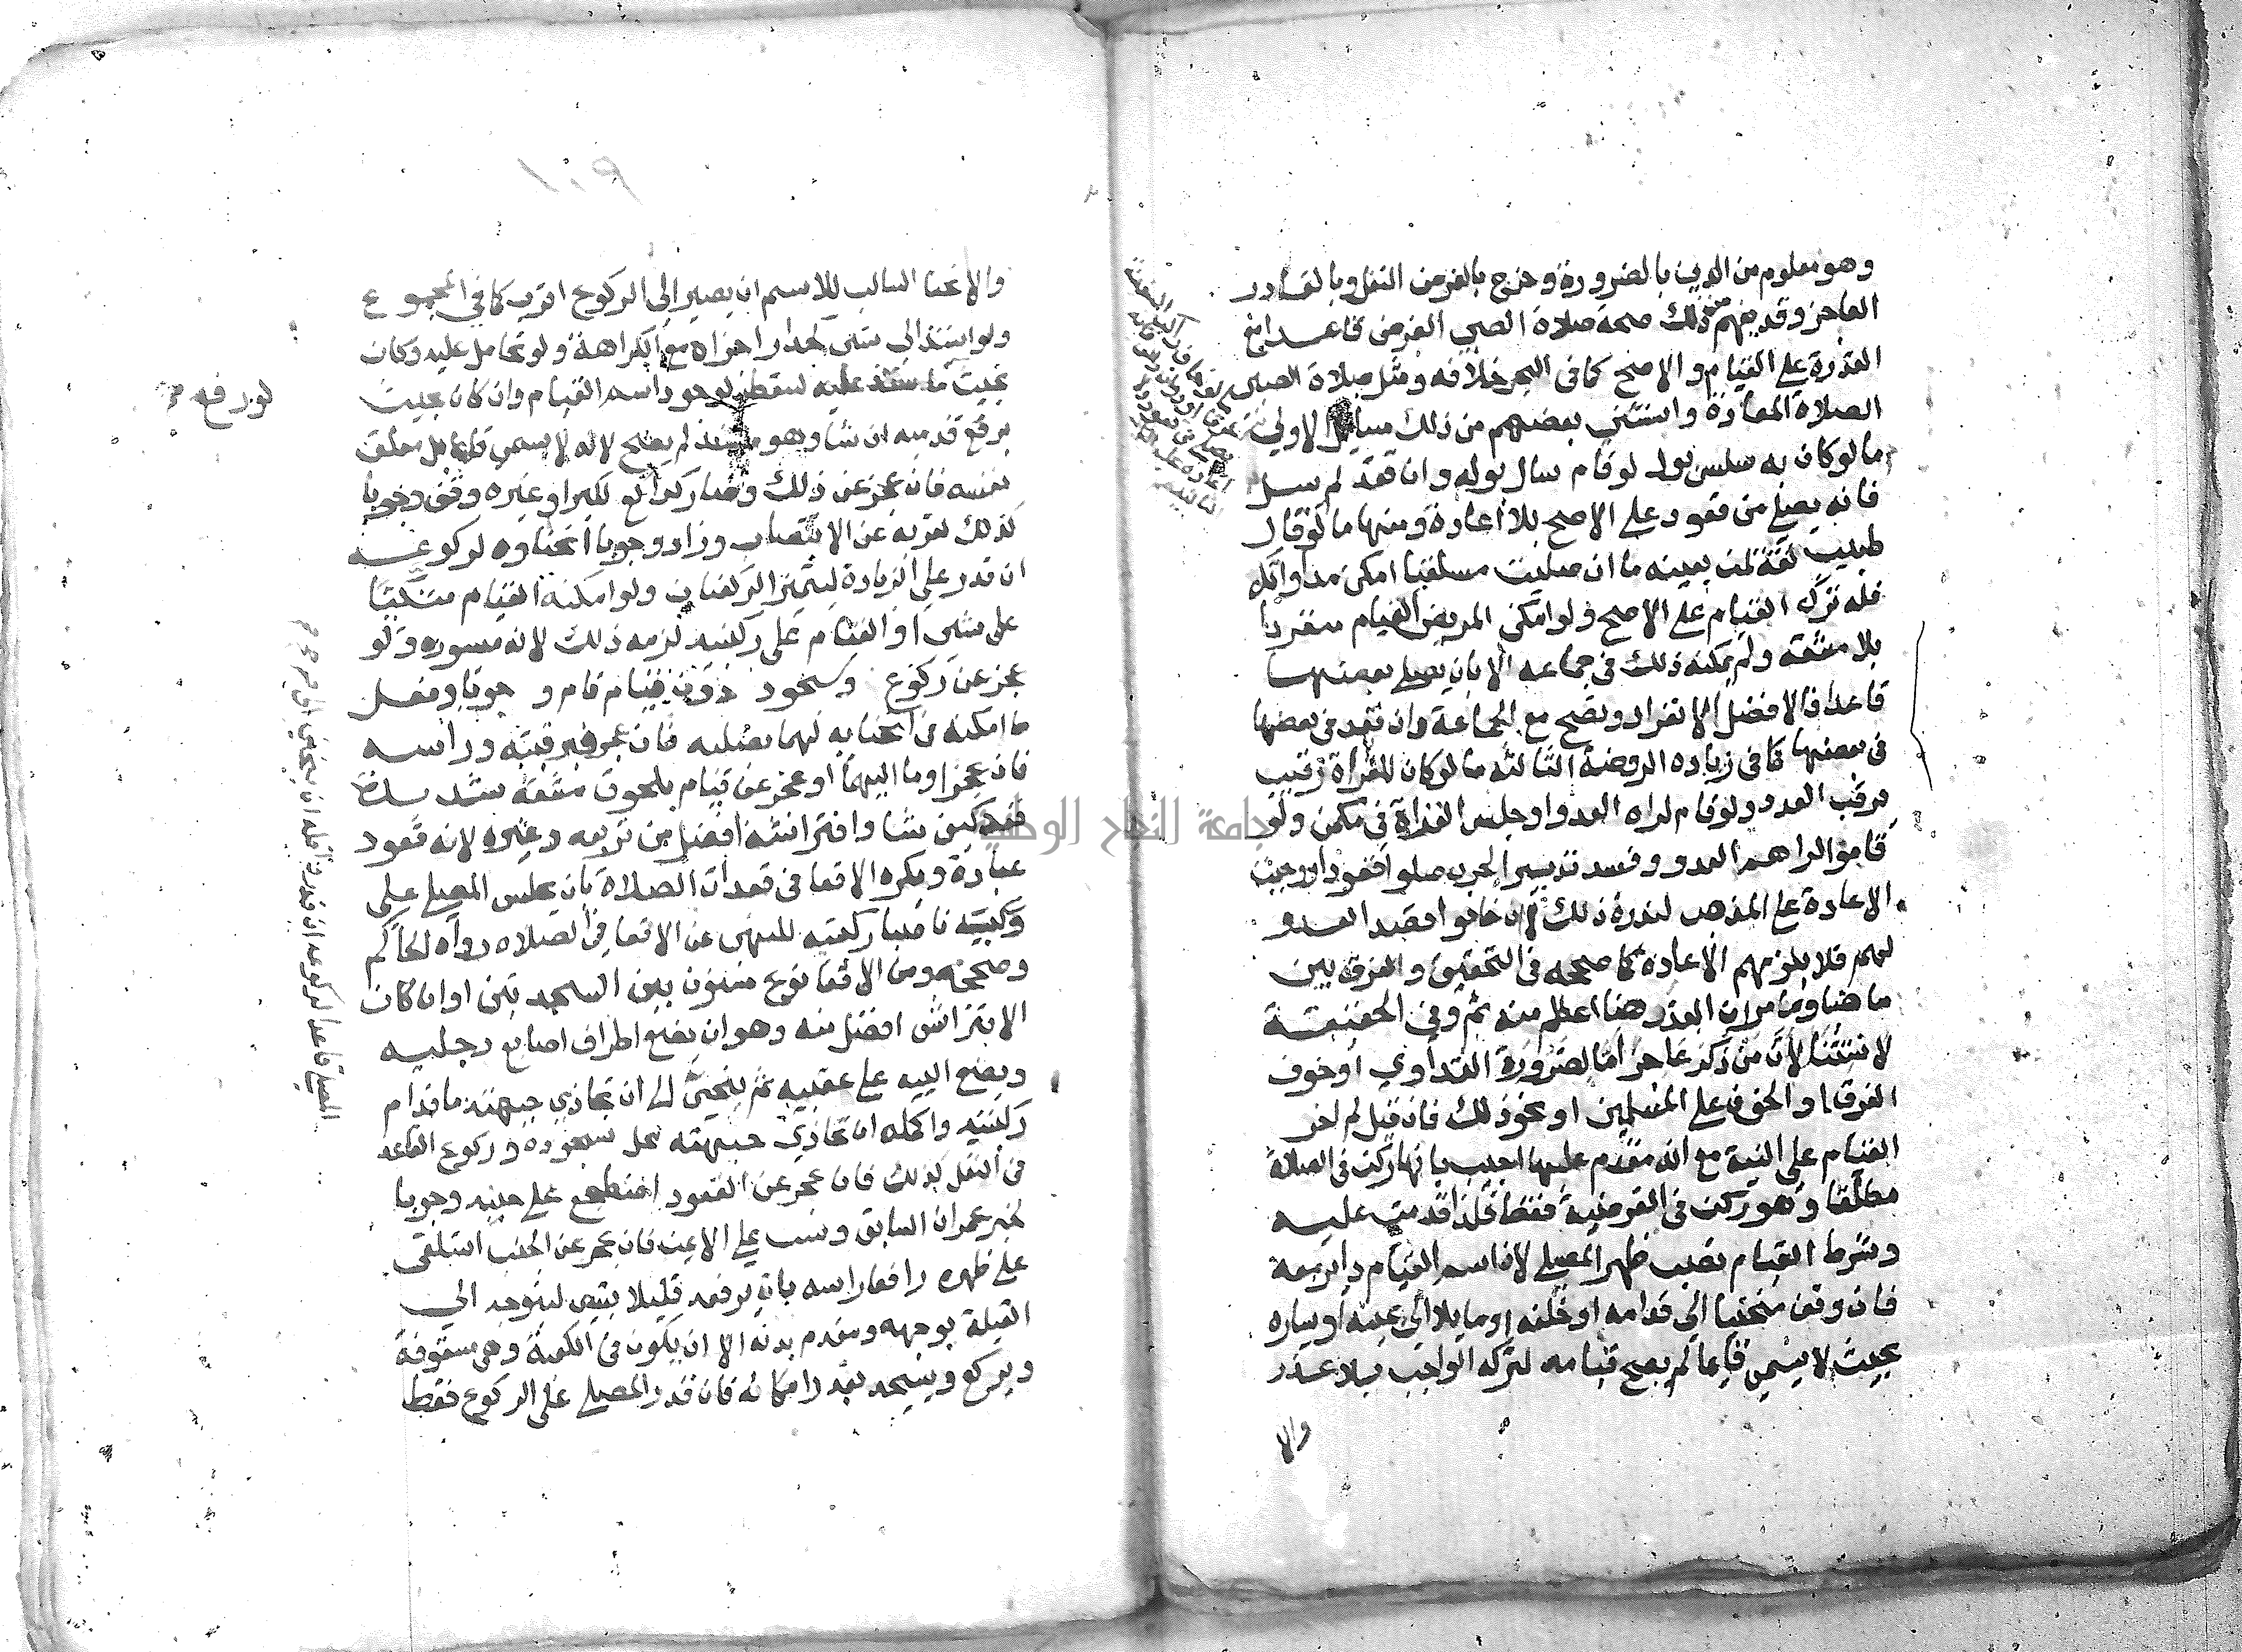 وهو معلوم من الدين بالضرورة وخرج بالفرض النفل وبالقادر
العاجز وقد يفهم من ذلك صحة صلاة الصبي الفرض قاعدا مع
القدرة على القيام والاصح كما في البحر خلافه ومثل صلاة الصبي
الصلاة المعادة واستثنى بعضهم من ذلك مسائل الاولى
ما لو كان به سلس بول لو قام سال بوله وان قعد لم يسل
فانه يصلي من قعود على الاصح بلا اعادة ومنها ما لو قال
طبيب ثقة لمن بعينه ما ان صليت مستلقيا امكن مداواتك
فله ترك القيام على الاصح ولو امكن المريض القيام منفردا
بلا مشقة ولم يمكنه ذلك في جماعه الا بان يصلي بعضها
قاعدا فالافضل الانفراد وتصح مع الجماعة وان قعد في بعضها
في بعضها كما في زياده الروضة الثالثه ما لو كان للغزاة رقيب
يرقب العدو ولو قام لراه العدو او جلس الغزاة في مكمن ولو
قاموا لراهم العدو وفسد تدبير الحرب صلوا قعودا ووجبت
الاعادة على المذهب لندرة ذلك لا ان خافوا قصد العدو
لهم فلا يلزمهم الاعاده كما صححه في التحقيق والفرق بين
ما هنا وما مر ان العذر هنا اعظم منه ثم وفي الحقيقة
لا استثنا لان من ذكر عاجز اما لضرورة التداوي او خوف
الغرق او الخوف على المسلمين او نحو ذلك فان قيل لم اخر
القيام على النية مع انه مقدم عليها اجيب بانها ركن في الصلاة
مطلقا وهو ركن في الفرضية فقط فلذا قدمت عليه
وشرط القيام نصب ظهر المصلي لان اسم القيام داير معه
فان وقف منحنيا الى قدامه او خلفه او مايلا الى يمينه او يساره
بحيث لا يسمى قايما لم يصح قيامه لتركه الواجب بلا عذر
والا
والانحنا السالب للاسم ان يصير الى الركوع اقرب كما في المجموع
ولو استند الى شي كجدار اجزاه مع الكراهة ولو تحامل عليه وكان
بحيث ما استند عليه لسقط لوجود اسم القيام وان كان بحيث
لو رفع
يرفع قدميه ان شا وهو مستند لم يصح لانه لا يسمى قايما بل معلق
نفسه فان عجز عن ذلك وصار كراكع لكبر او غيره وقف وجوبا
كذلك لقربه عن الانتصاب وزاد وجوبا انحناوه لركوعه
ان قدر على الزيادة ليتميز الركنان ولو امكنه القيام متكيا
على شي او القيام على ركبتيه لزمه ذلك لانه ميسوره ولو
عجز عن ركوع وسجود دون قيام قام وجوبا وفعل
ما امكنه في انحنايه لهما بصلبه فان عجز فبرقبته وراسه
فان عجز اوما اليهما او عجز عن قيام بلحوق مشقة شديدة
قعد كيف شا وافتراشه افضل من تربعه وغيره لانه قعود
عبادة ويكره الاقعا في قعدات الصلاة بان يجلس المصلي على
وركيه ناصبا ركبتيه للنهي عن الاقعا في الصلاه رواه الحاكم
وصححه ومن الاقعا نوع مسنون بين السجدتين اوان كان
الافتراش افضل منه وهو ان يضع اطراف اصابع رجليه
ويضع الييه على عقبيه ثم ينحني الى ان تحاذي جبهته ما قدام
ركبتيه واكمله ان تحاذي جبهته محل سجوده وركوع القاعد
في النفل كذلك فان عجز عن القعود اضطجع على جنبه وجوبا
لخبر عمران السابق وسن على الايمن فان عجز عن الجنب استلقى
على ظهره رافعا راسه بان يرفعه قليلا بشي ليتوجه الى
القبلة بوجهه ومقدم بدنه الا ان يكون في الكعبة وهي مسقوفة
ويركع ويسجد بقدر امكانه فان قدر المصلي على الركوع فقط
جامعة النجاح الوطنية